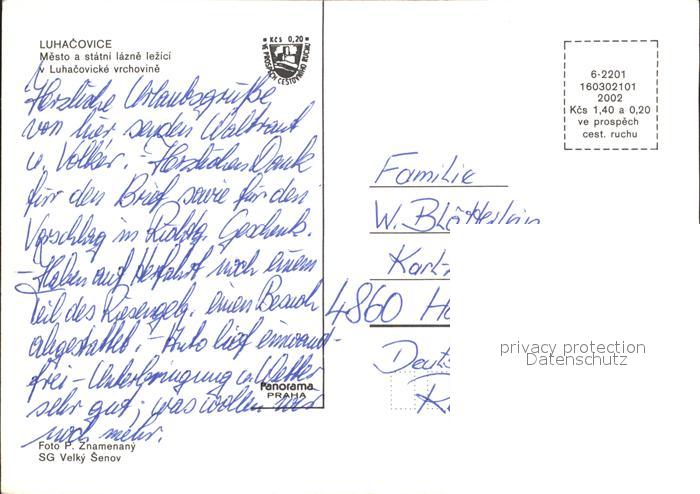 LUHAČOVICE
Město a státní lázně ležící
v Luhačovické vrchovině
Kčs 0,20
VE PROSPĚCH CESTOVNÍHO RUCHU
6-2201
160302101
2002
Kčs 1,40 a 0,20
ve prospěch
cest. ruchu
Herzliche Urlaubsgrüße
von hier senden Waltraut
u. Volker. – Herzlichen Dank
für den Brief sowie für den
Vorschlag in Richtg. Geschenk.
– Haben auf Herfahrt noch einem
Teil des Riesengeb. einen Besuch
abgestattet. – Auto lief einwand-
frei – Unterbringung u. Wetter
sehr gut; was wollen wir
noch mehr.
Familie
W.
Karl-
4860
Panorama
PRAHA
Foto P. Znamenaný
SG Velký Šenov
privacy protection
Datenschutz